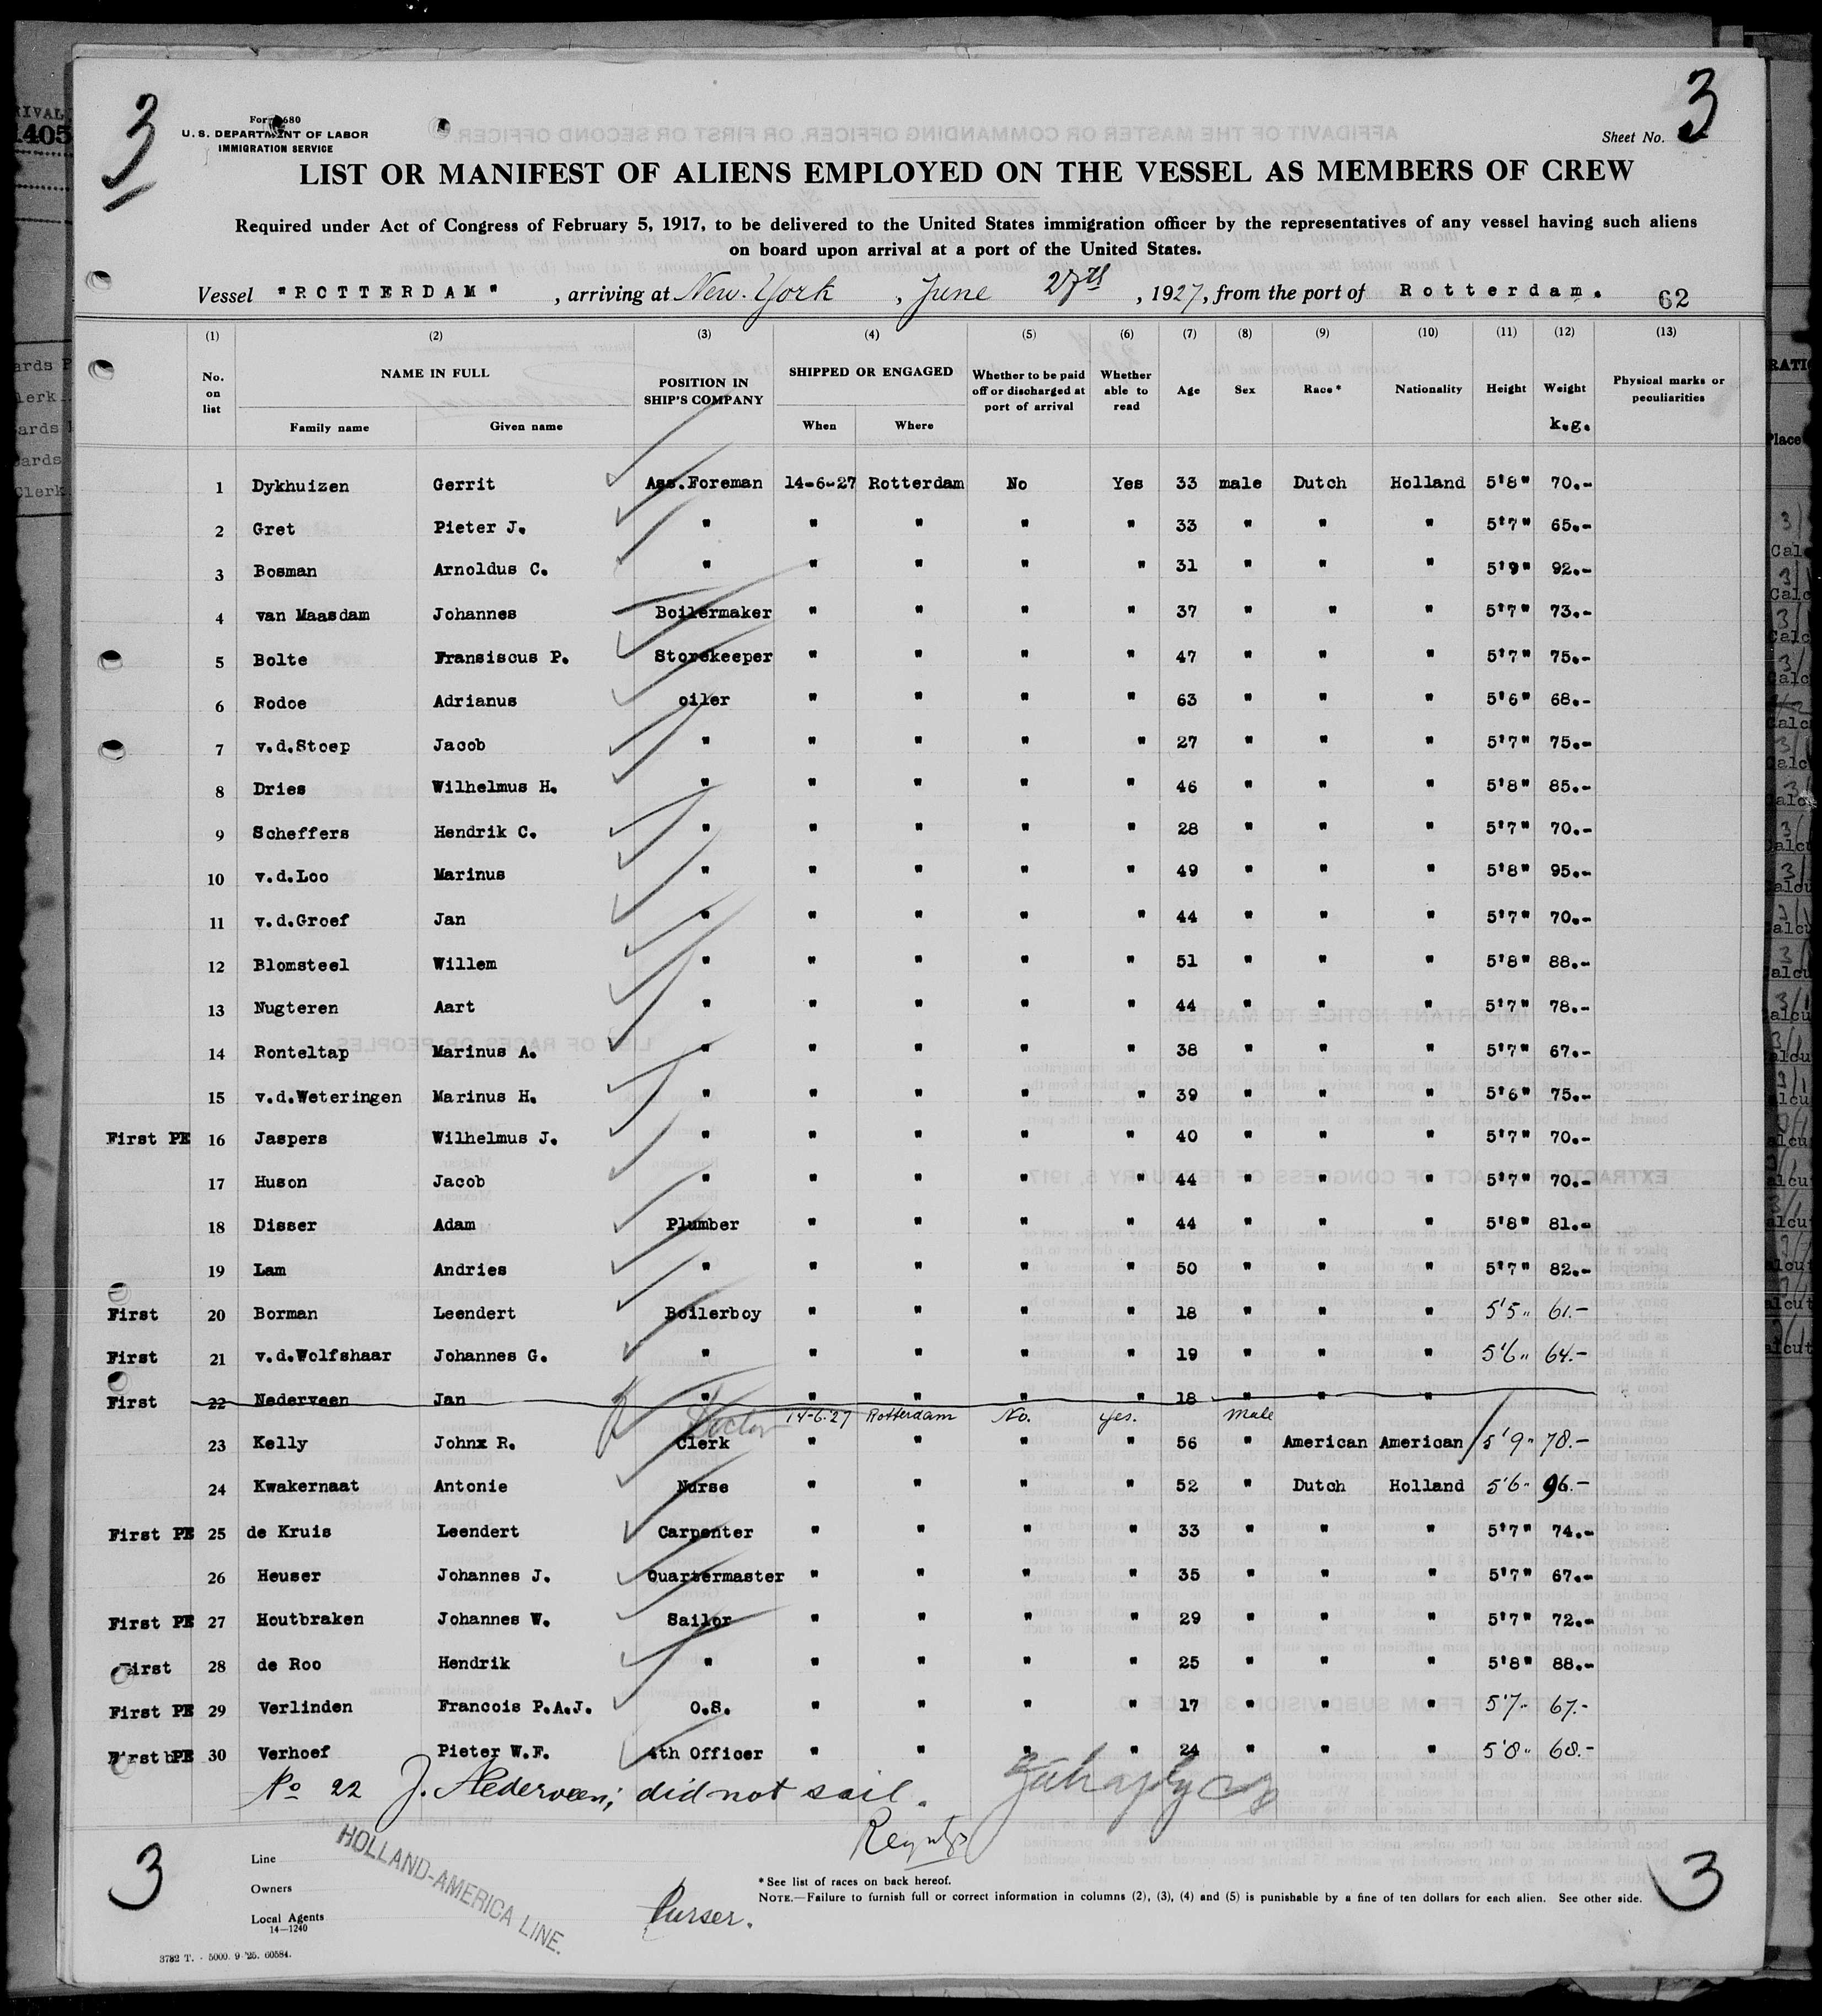 3
Form 680
U. S. DEPARTMENT OF LABOR
IMMIGRATION SERVICE
Sheet No. 3
LIST OR MANIFEST OF ALIENS EMPLOYED ON THE VESSEL AS MEMBERS OF CREW
Required under Act of Congress of February 5, 1917, to be delivered to the United States immigration officer by the representatives of any vessel having such aliens
on board upon arrival at a port of the United States.
Vessel "ROTTERDAM" , arriving at New. York , June 27th , 1927, from the port of Rotterdam. 62
(1) (2) (3) (4) (5) (6) (7) (8) (9) (10) (11) (12) (13)
No. on list NAME IN FULL Family name Given name POSITION IN SHIP'S COMPANY SHIPPED OR ENGAGED When Where Whether to be paid off or discharged at port of arrival Whether able to read Age Sex Race* Nationality Height Weight k.g. Physical marks or peculiarities
1 Dykhuizen Gerrit Ass.Foreman 14-6-27 Rotterdam No Yes 33 male Dutch Holland 5'8" 70.-
2 Gret Pieter J. " " " " " 33 " " " 5'7" 65.-
3 Bosman Arnoldus C. " " " " " 31 " " " 5'9" 92.-
4 van Maasdam Johannes Boilermaker " " " " 37 " " " 5'7" 73.-
5 Bolte Fransiscus P. Storekeeper " " " " 47 " " " 5'7" 75.-
6 Rodoe Adrianus oiler " " " " 63 " " " 5'6" 68.-
7 v.d.Stoep Jacob " " " " " 27 " " " 5'7" 75.-
8 Dries Wilhelmus H. " " " " " 46 " " " 5'8" 85.-
9 Scheffers Hendrik C. " " " " " 28 " " " 5'7" 70.-
10 v.d.Loo Marinus " " " " " 49 " " " 5'8" 95.-
11 v.d.Groef Jan " " " " " 44 " " " 5'7" 70.-
12 Blomsteel Willem " " " " " 51 " " " 5'8" 88.-
13 Nugteren Aart " " " " " 44 " " " 5'7" 78.-
14 Ronteltap Marinus A. " " " " " 38 " " " 5'7" 67.-
15 v.d.Weteringen Marinus H. " " " " " 39 " " " 5'6" 75.-
First PE 16 Jaspers Wilhelmus J. " " " " " 40 " " " 5'7" 70.-
17 Huson Jacob " " " " " 44 " " " 5'7" 70.-
18 Disser Adam Plumber " " " " 44 " " " 5'8" 81.-
19 Lam Andries " " " " " 50 " " " 5'7" 82.-
First 20 Borman Leendert Boilerboy " " " " 18 " " " 5'5" 61.-
First 21 v.d.Wolfshaar Johannes G. " " " " " 19 " " " 5'6" 64.-
First 22 Nederveen Jan " " " " " 18 " " "
Doctor 14-6-27 Rotterdam No. yes. Male
23 Kelly Johnx R. Clerk " " " " 56 " American American 5'9" 78.-
24 Kwakernaat Antonie Nurse " " " " 52 " Dutch Holland 5'6" 96.-
First PE 25 de Kruis Leendert Carpenter " " " " 33 " " " 5'7" 74.-
26 Heuser Johannes J. Quartermaster " " " " 35 " " " 5'7" 67.-
First PE 27 Houtbraken Johannes W. Sailor " " " " 29 " " " 5'7" 72.-
First 28 de Roo Hendrik " " " " " 25 " " " 5'8" 88.-
First PE 29 Verlinden Francois P.A.J. O.S. " " " " 17 " " " 5'7" 67.-
First PE 30 Verhoef Pieter W.F. 4th Officer " " " " 24 " " " 5'8" 68.-
No 22 J. Nederveen; did not sail.
3
Line
Owners
Local Agents
14—1240
HOLLAND-AMERICA LINE.
Purser.
* See list of races on back hereof.
NOTE.—Failure to furnish full or correct information in columns (2), (3), (4) and (5) is punishable by a fine of ten dollars for each alien. See other side.
3
3782 T. - 5000. 9-'25. 60584.